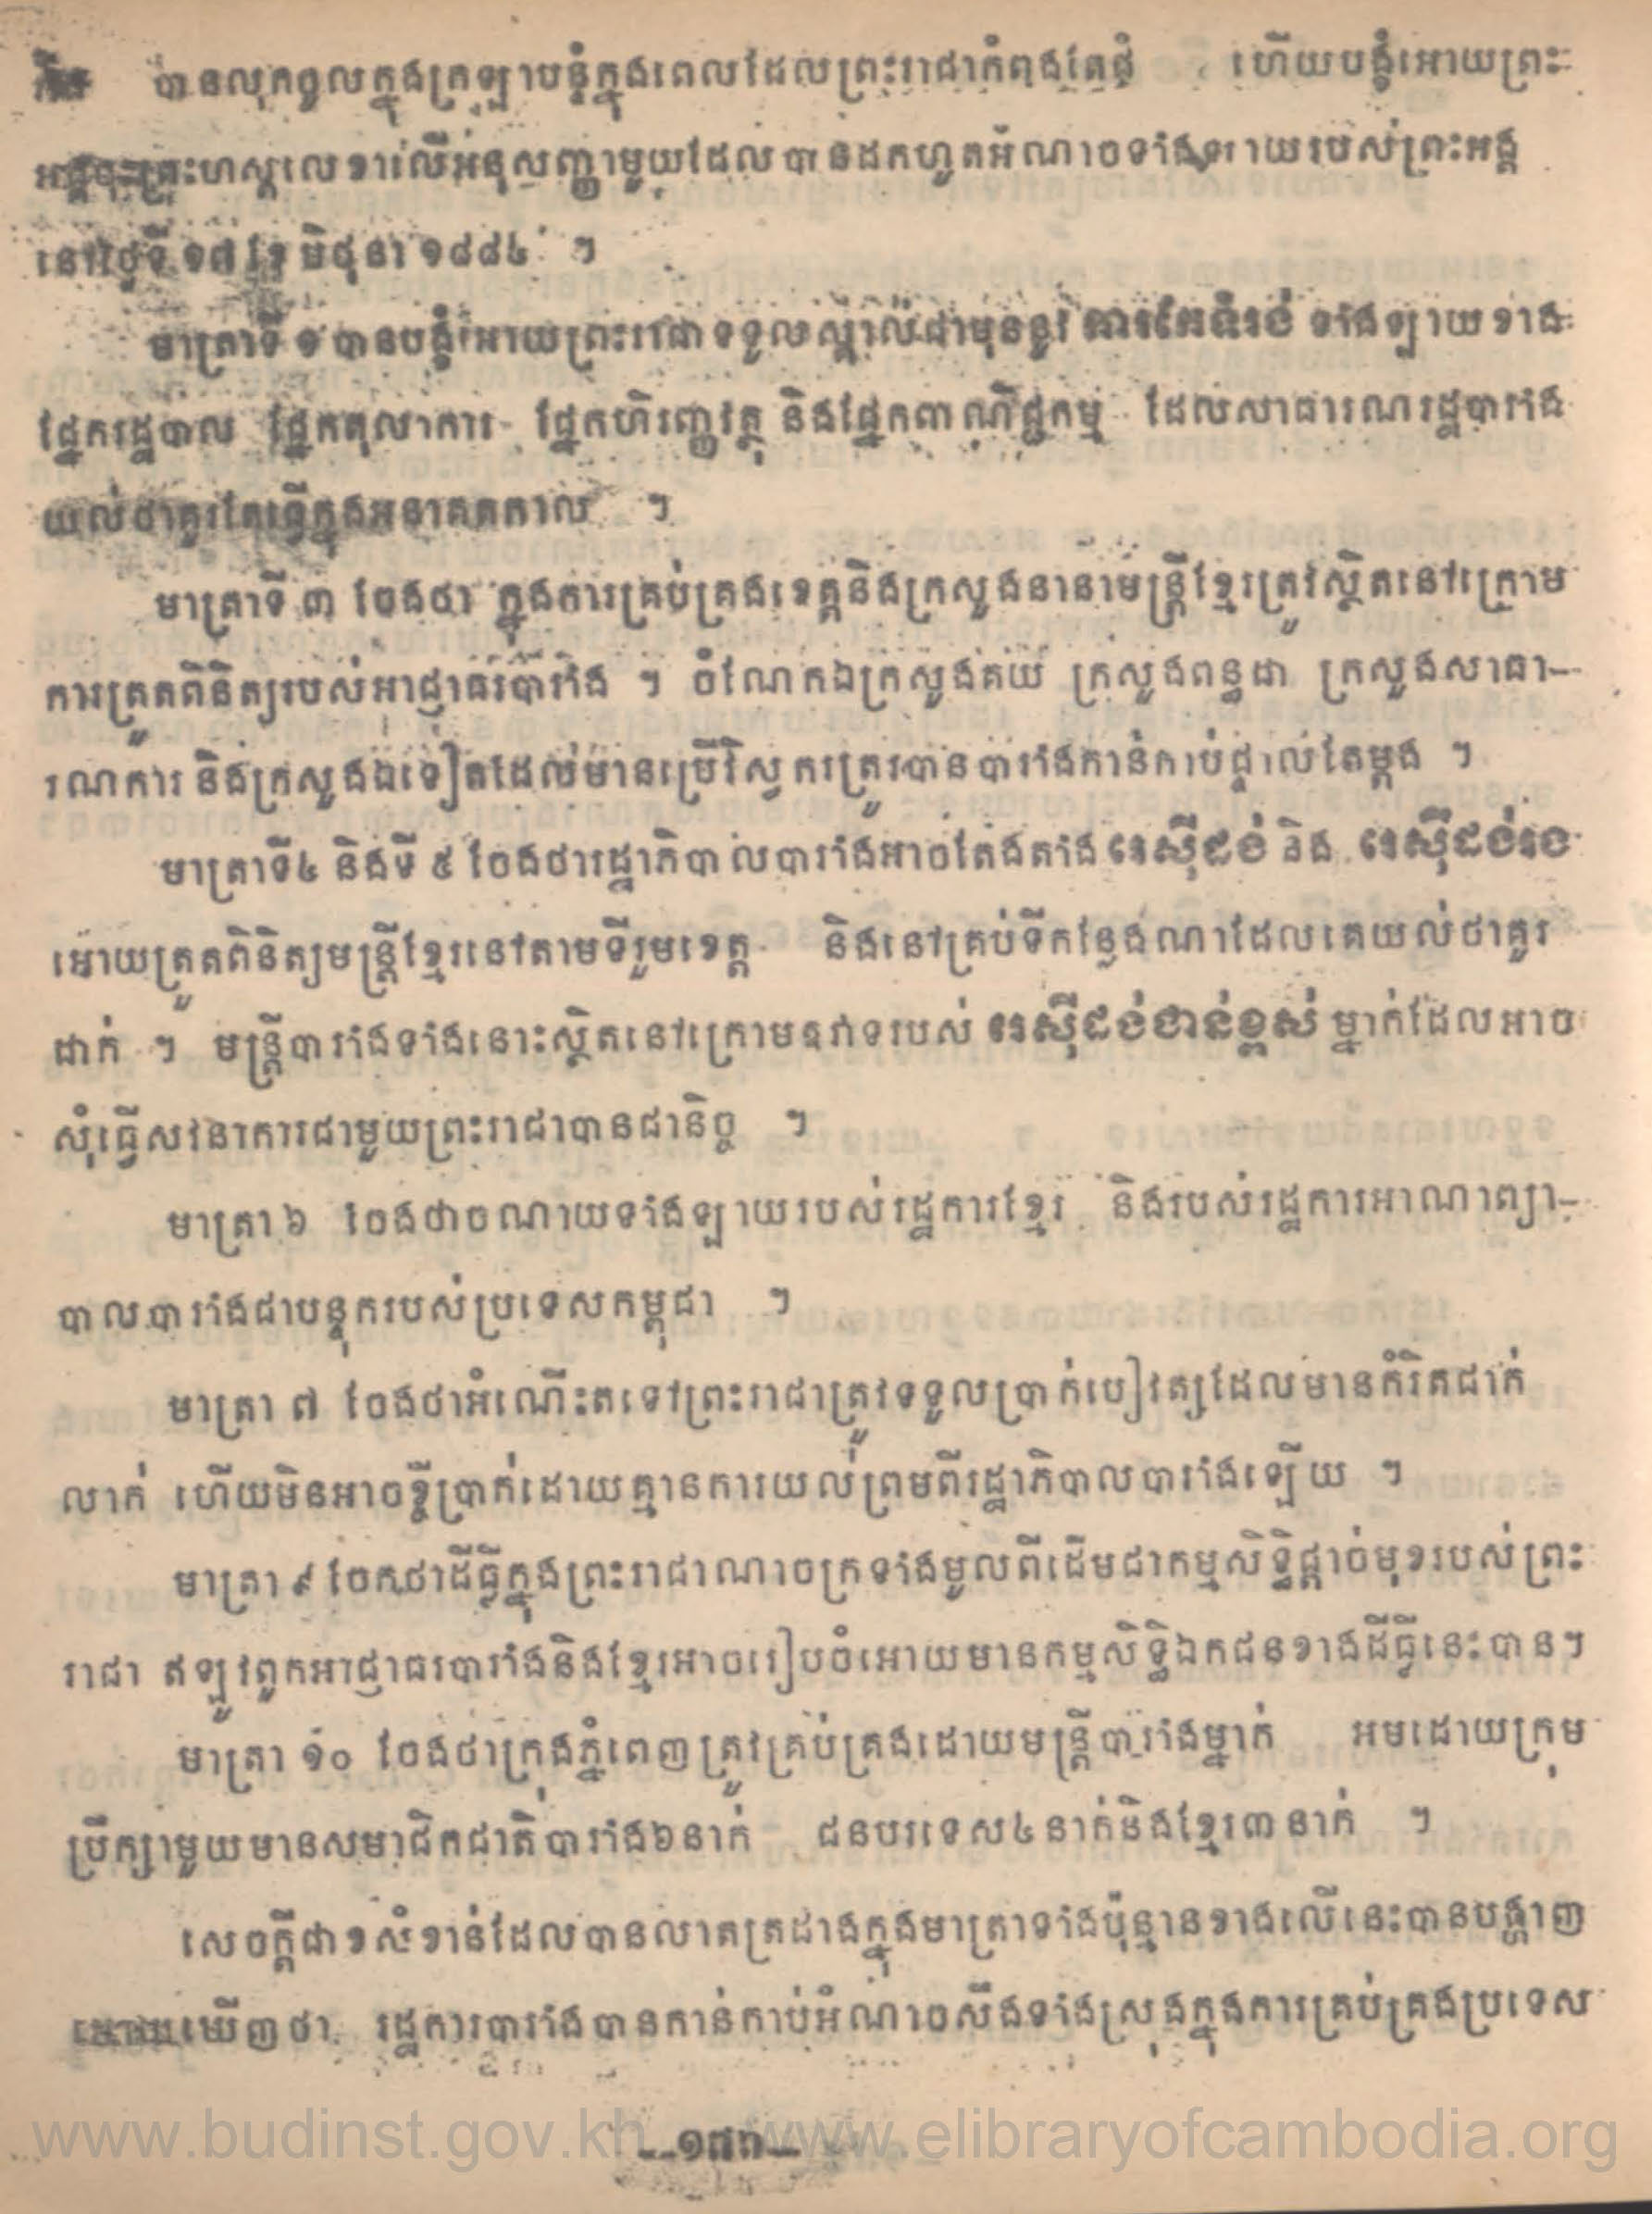 បានលុកចូលក្នុងក្រឡាបន្ទំក្នុងពេលដែលព្រះរាជាកំពុងតែផ្ទំ ហើយបង្ខំអោយព្រះ
អង្គចុះព្រះហស្តលេខាលើអនុសញ្ញាមួយដែលបានដកហូតអំណាចទាំងឡាយរបស់ព្រះអង្គ
នៅថ្ងៃទី ១៧ ខែ មិថុនា ១៨៨៤ ។
មាត្រាទី ១ បានបង្ខំអោយព្រះរាជាទទួលស្គាល់ជាមុននូវ ការកែទំរង់ ទាំងឡាយខាង
ផ្នែករដ្ឋបាល ផ្នែកតុលាការ ផ្នែកហិរញ្ញវត្ថុ និងផ្នែកពាណិជ្ជកម្ម ដែលសាធារណរដ្ឋបារាំង
យល់ថាគួរតែធ្វើក្នុងអនាគតកាល ។
មាត្រាទី ៣ ចែងថា ក្នុងការគ្រប់គ្រងខេត្តនិងក្រសួងនានាមន្ត្រីខ្មែរត្រូវស្ថិតនៅក្រោម
ការត្រួតពិនិត្យរបស់អាជ្ញាធរបារាំង ។ ចំណែកឯក្រសួងគយ ក្រសួងពន្ធដា ក្រសួងសាធា-
រណការ និងក្រសួងឯទៀតដែលមានប្រើវិស្វករត្រូវបានបារាំងកាន់កាប់ផ្ទាល់តែម្តង ។
មាត្រាទី៤ និងទី ៥ ចែងថារដ្ឋាភិបាលបារាំងអាចតែងតាំង រេស៊ីដង់ និង រេស៊ីដង់រង
អោយត្រួតពិនិត្យមន្ត្រីខ្មែរនៅតាមទីរួមខេត្ត និងនៅគ្រប់ទីកន្លែងណាដែលគេយល់ថាគួរ
ដាក់ ។ មន្ត្រីបារាំងទាំងនោះស្ថិតនៅក្រោមឧវាទរបស់ រេស៊ីដង់ជាន់ខ្ពស់ ម្នាក់ដែលអាច
សុំធ្វើសវនាការជាមួយព្រះរាជាបានជានិច្ច ។
មាត្រា ៦ ចែងថាចណាយទាំងឡាយរបស់រដ្ឋការខ្មែរ និងរបស់រដ្ឋការអាណាព្យា-
បាលបារាំងជាបន្ទុករបស់ប្រទេសកម្ពុជា ។
មាត្រា ៧ ចែងថាអំណើះតទៅព្រះរាជាត្រូវទទួលប្រាក់បៀវត្សដែលមានកំរិតជាក់
លាក់ ហើយមិនអាចខ្ចីប្រាក់ដោយគ្មានការយល់ព្រមពីរដ្ឋាភិបាលបារាំងឡើយ ។
មាត្រា ៩ ចែកថាដីធ្លីក្នុងព្រះរាជាណាចក្រទាំងមូលពីដើមជាកម្មសិទ្ធិផ្តាច់មុខរបស់ព្រះ
រាជា ឥឡូវពួកអាជ្ញាធរបារាំងនិងខ្មែរអាចរៀបចំអោយមានកម្មសិទ្ធិឯកជនខាងដីធ្លីនេះបាន។
មាត្រា ១០ ចែងថាក្រុងភ្នំពេញត្រូវគ្រប់គ្រងដោយមន្ត្រីបារាំងម្នាក់ អមដោយក្រុម
ប្រឹក្សាមួយមានសមាជិកជាតិបារាំង៦នាក់ ជនបរទេស៤នាក់និងខ្មែរ៣នាក់ ។
សេចក្តីជាខសំខាន់ដែលបានលាតត្រដាងក្នុងមាត្រាទាំងប៉ុន្មានខាងលើនេះបានបង្ហាញ
អោយឃើញថា រដ្ឋការបារាំងបានកាន់កាប់អំណាចសឹងទាំងស្រុងក្នុងការគ្រប់គ្រងប្រទេស
www.budinst.gov.kh www.elibraryofcambodia.org